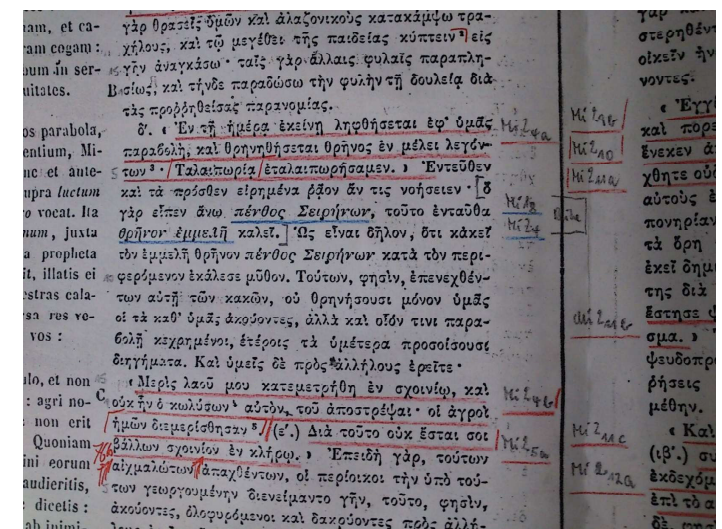 nam, et ca-
ram cogam :
in ser-
uitates.
os parabola,
entium, Mi-
nc et ante-
upra luctum
o vocat. Ita
num, juxta
a propheta
it, illatis ei
estras cala-
sa res ve-
vos :
ulo, et non
: agri no-
non erit
Quoniam
ini eorum
audieritis,
dicetis :
ab inimi-
γὰρ θρασεῖς ὑμῶν καὶ ἀλαζονικοὺς κατακάμψω τρα-
χήλους, καὶ τῷ μεγέθει τῆς παιδείας κύπτειν εἰς
γῆν ἀναγκάσω· ταῖς γὰρ ἄλλαις φυλαῖς παραπλη-
B σίως, καὶ τήνδε παραδώσω τὴν φυλὴν τῇ δουλείᾳ διὰ
τὰς προῤῥηθείσας παρανομίας.
δʹ. « Ἐν τῇ ἡμέρᾳ ἐκείνῃ ληφθήσεται ἐφ' ὑμᾶς
παραβολὴ, καὶ θρηνηθήσεται θρῆνος ἐν μέλει λεγόν-
των ³· Ταλαιπωρίᾳ ἐταλαιπωρήσαμεν. » Ἐντεῦθεν
καὶ τὰ πρόσθεν εἰρημένα ῥᾷον ἄν τις νοήσειεν· [ὃ
γὰρ εἶπεν ἄνω πένθος Σειρήνων, τοῦτο ἐνταῦθα
θρῆνον ἐμμελῆ καλεῖ.] Ὡς εἶναι δῆλον, ὅτι κἀκεῖ
τὸν ἐμμελῆ θρῆνον πένθος Σειρήνων κατὰ τὸν περι-
φερόμενον ἐκάλεσε μῦθον. Τούτων, φησὶν, ἐπενεχθέν-
των αὐτῇ τῶν κακῶν, οὐ θρηνήσουσι μόνον ὑμᾶς
οἱ τὰ καθ' ὑμᾶς ἀκούοντες, ἀλλὰ καὶ οἷόν τινι παρα-
βολῇ κεχρημένοι, ἑτέροις τὰ ὑμέτερα προσοίσουσι
διηγήματα. Καὶ ὑμεῖς δὲ πρὸς ἀλλήλους ἐρεῖτε·
« Μερὶς λαοῦ μου κατεμετρήθη ἐν σχοινίῳ, καὶ
C οὐκ ἦν ὁ κωλύσων αὐτὸν, τοῦ ἀποστρέψαι· οἱ ἀγροὶ
ἡμῶν διεμερίσθησαν ⁵. (εʹ.) Διὰ τοῦτο οὐκ ἔσται σοι
βάλλων σχοινίον ἐν κλήρῳ. » Ἐπειδὴ γὰρ, τούτων
αἰχμαλώτων ἀπαχθέντων, οἱ περίοικοι τὴν ὑπὸ τού-
των γεωργουμένην διενείμαντο γῆν, τοῦτο, φησὶν,
ἀκούοντες, ὀλοφυρόμενοι καὶ δακρύοντες πρὸς ἀλλή-
Mi 2,4a
Mi 1,8
Mi 2,4
Mi 2,4b
Mi 2,5a
Mi 2,9b
Mi 2,10
Mi 2,11a
Mi 2,11b
Mi 2,11c
Mi 2,12a
γὰρ
στερηθέντ
οἰκεῖν ἡν
νοντες.
« Ἐγγί
καὶ πορε
ἕνεκεν ἀ
χθητε οὐδ
αὐτοὺς ἐ
πονηρίαν
τὰ ὄρη
ἐκεῖ δημι
της διὰ
ἔστησε ψ
σμα. »
ψευδοπρ
ῥήσεις
μέθην.
« Καὶ
(ιβʹ.) συ
ἐκδεχόμ
ἐπὶ τὸ α